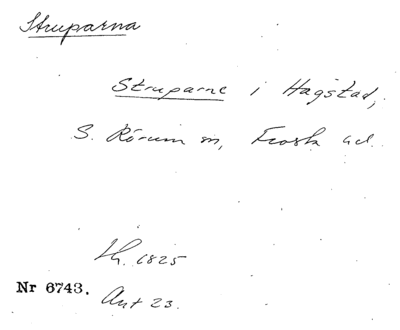 Struparna
Struparne i Hagstad,
S. Rörum sn, Frosta hd.
Lh. 1825
Nr 6743. Ant 23.